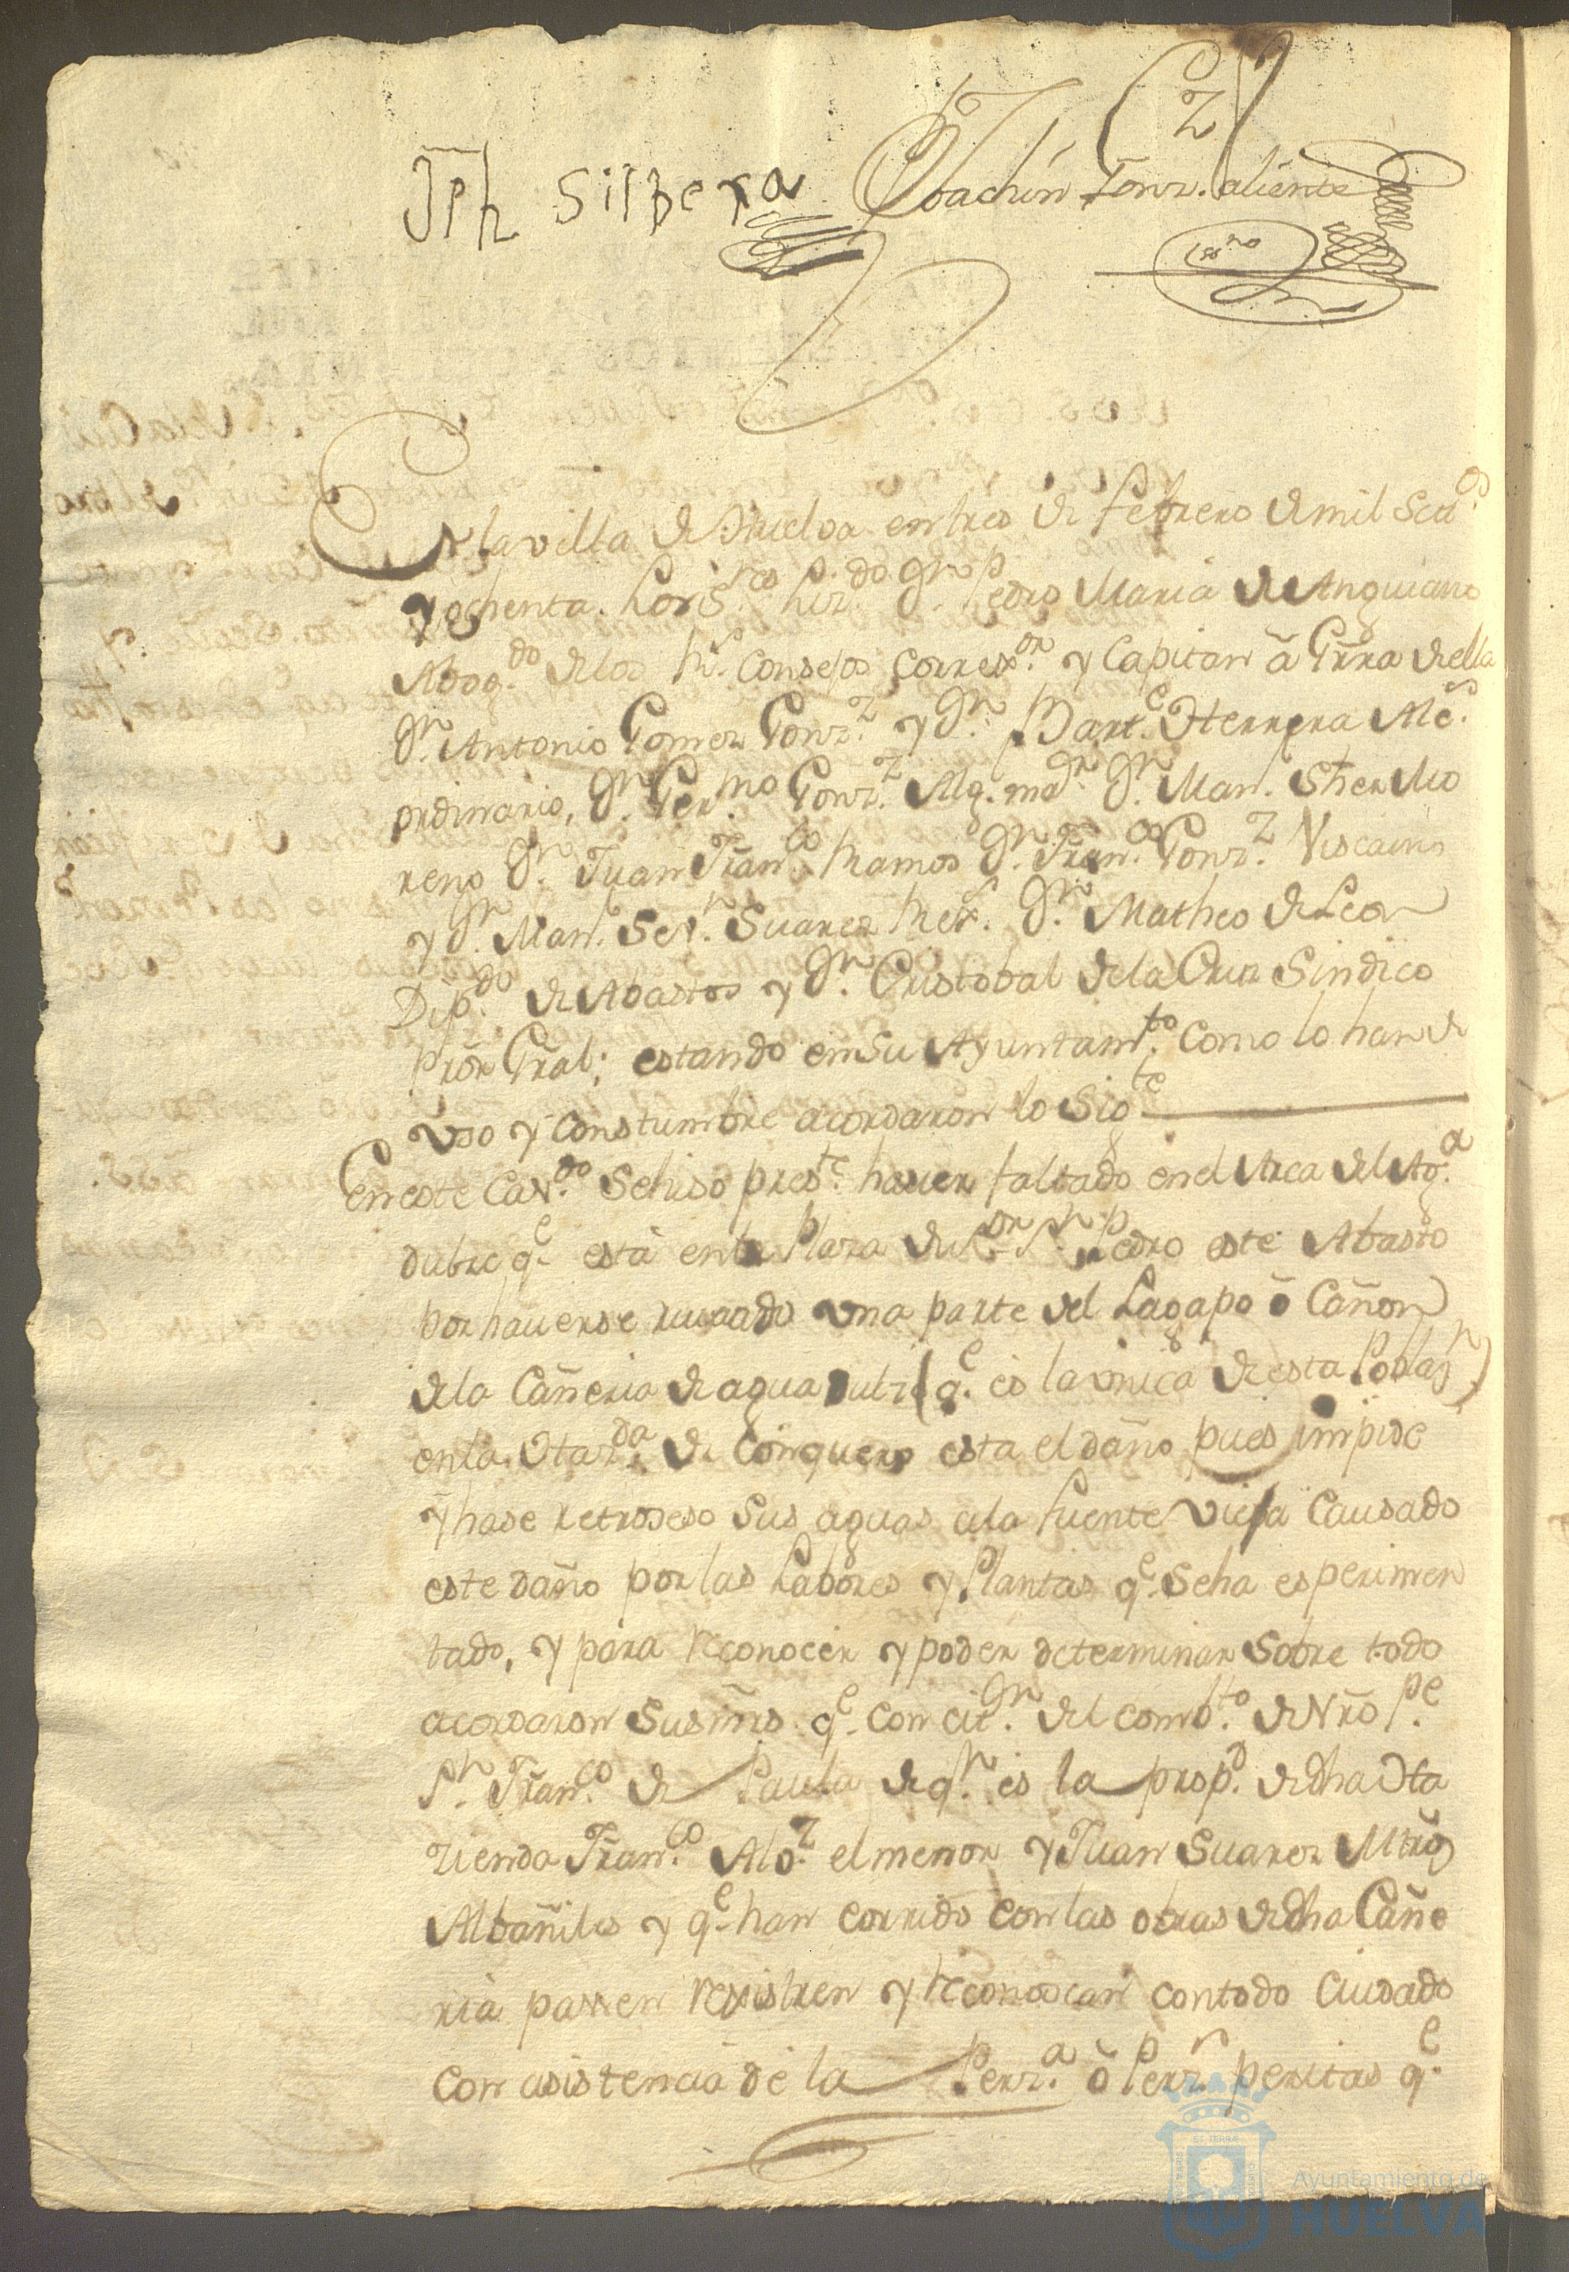 Jph Silbera Joachin Gonz. aliente
ess.no
En la villa de Huelva en tres de febrero de mil setes.
y ochenta. Los S.res Liz.do Dn. Pedro Maria de Anguiano
Abog.do de los Rs. Consejos Correx.or y Capitan â Grra de ella
Dn. Antonio Gomez Gonz.z y Dn. Bart.e Herrera Alc.s
ordinario, Dn. Ger.mo Gonz.z Alg. mor. Dn. Man. Sher Mo
reno Dn. Juan Fran.co Ramos Dn. Fran.co Gonz.z Viscaino
y Dn. Man. Sev.n Suarez Rex.s Dn. Matheo de Leon
Dip.do de Abastos y Dn. Cristobal de la Cruz Sindico
Prõr Gral; estando en su Ayuntam.to como lo han de
uso y constumbre acordaron lo Sig.te
En este Cav.do se hiso pres.te haver faltado en el Arca del Ag.a
dulze q.e está en la Plaza de Sor. Sn. Pedro este Abasto
por haverse una parte del Lagapo ô Cañon
de la Cañeria de agua dulze (q.e es la unica de esta Poblaz.n)
en la Haz.da de Conquero esta el daño pues impide
y hase retroseso sus aguas a la fuente vieja Causado
este daño por las Labores y Plantas q.e se ha esperimen
tado, y para reconocer y poder determinar sobre todo
acordaron sus mrs. q.e con cit.n del comb.to de Nro P.e
Sn. Fran.co de Paula de q.n es la prop.d de dha Ha
zienda Fran.co Alo.z el menor y Juan Suarez Mtros
Albañiles y q.e han corrido con las obras de dha Cañe
ria passen rexistren y reconoscan con todo cuidado
con asistencia de la Perz.a ô Perz.s peritas q.e
Ayuntamiento de
HUELVA